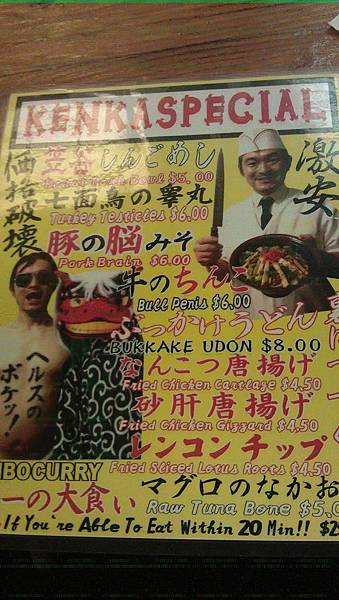 KENKA SPECIAL
激安
価格破壊
しんごめし
Bowl $5.00
七面鳥の睾丸
Turkey Testicles $6.00
豚の脳みそ
Pork Brain $6.00
牛のちんこ
Bull Penis $6.00
ぶっかけうどん
BUKKAKE UDON $8.00
なんこつ唐揚げ
Fried Chicken Cartlage $4.50
砂肝唐揚げ
Fried Chicken Gizzard $4.50
レンコンチップ
Fried Sliced Lotus Roots $4.50
ヘルスの
ボケッ!
MBOCURRY
マグロのなかお
Raw Tuna Bone $5.0
ーの大食い
If You're Able To Eat Within 20 Min!! $2